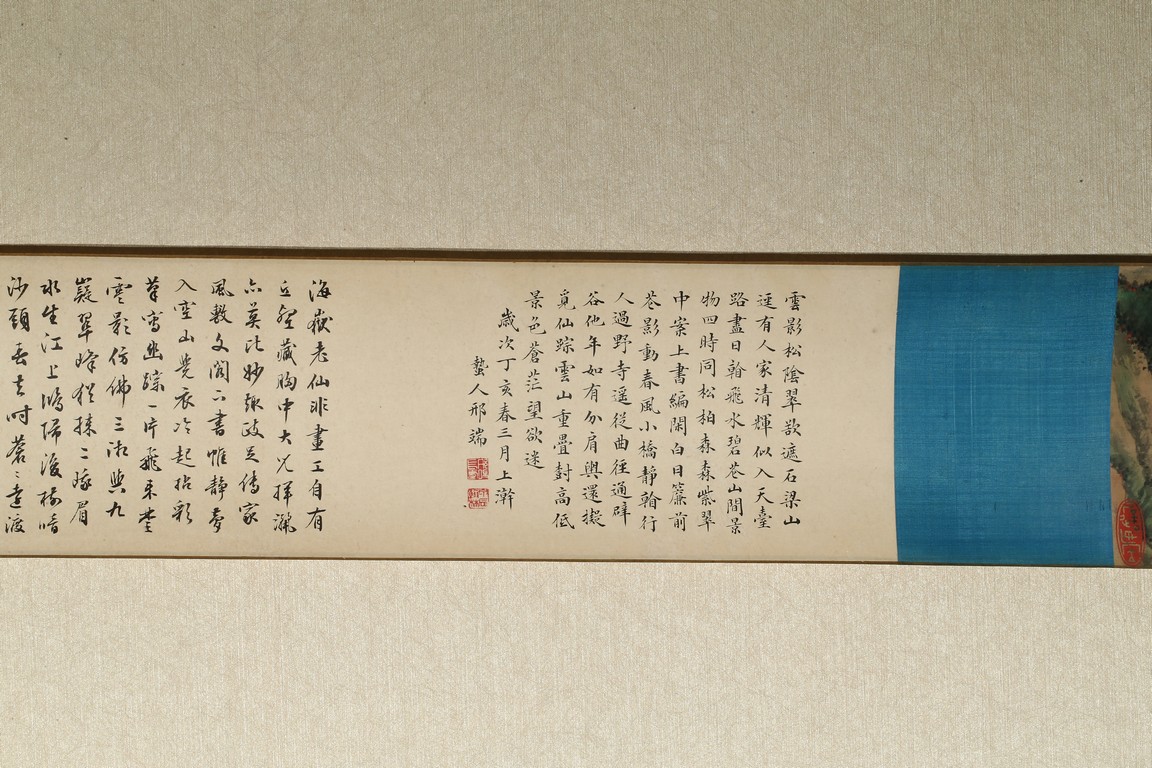 雲影松陰翠欲遮石梁山
逕有人家清輝似入天臺
路盡日翰飛水碧巷山間景
物四時同松柏森森紫翠
中案上書編閑白日簾前
巷影動春風小橋靜翰行
人過野寺遥從曲徑通辟
谷他年如有分肩輿還擬
覓仙踪雲山重疊封高低
景色蒼茫望欲迷
歲次丁亥春三月上澣
蟄人邢端
海嶽老仙非畫工自有
丘壑藏胸中大兒揮灑
亦莫比妙趣政足傳家
風敷文閣下書帷靜夢
入空山覺衣冷起拈彩
筆寫幽踪一片飛來
雲影仿佛三湘與九
嶷翠峰猶抹二蛾眉
水生江上鴻歸後
沙頭去時蒼